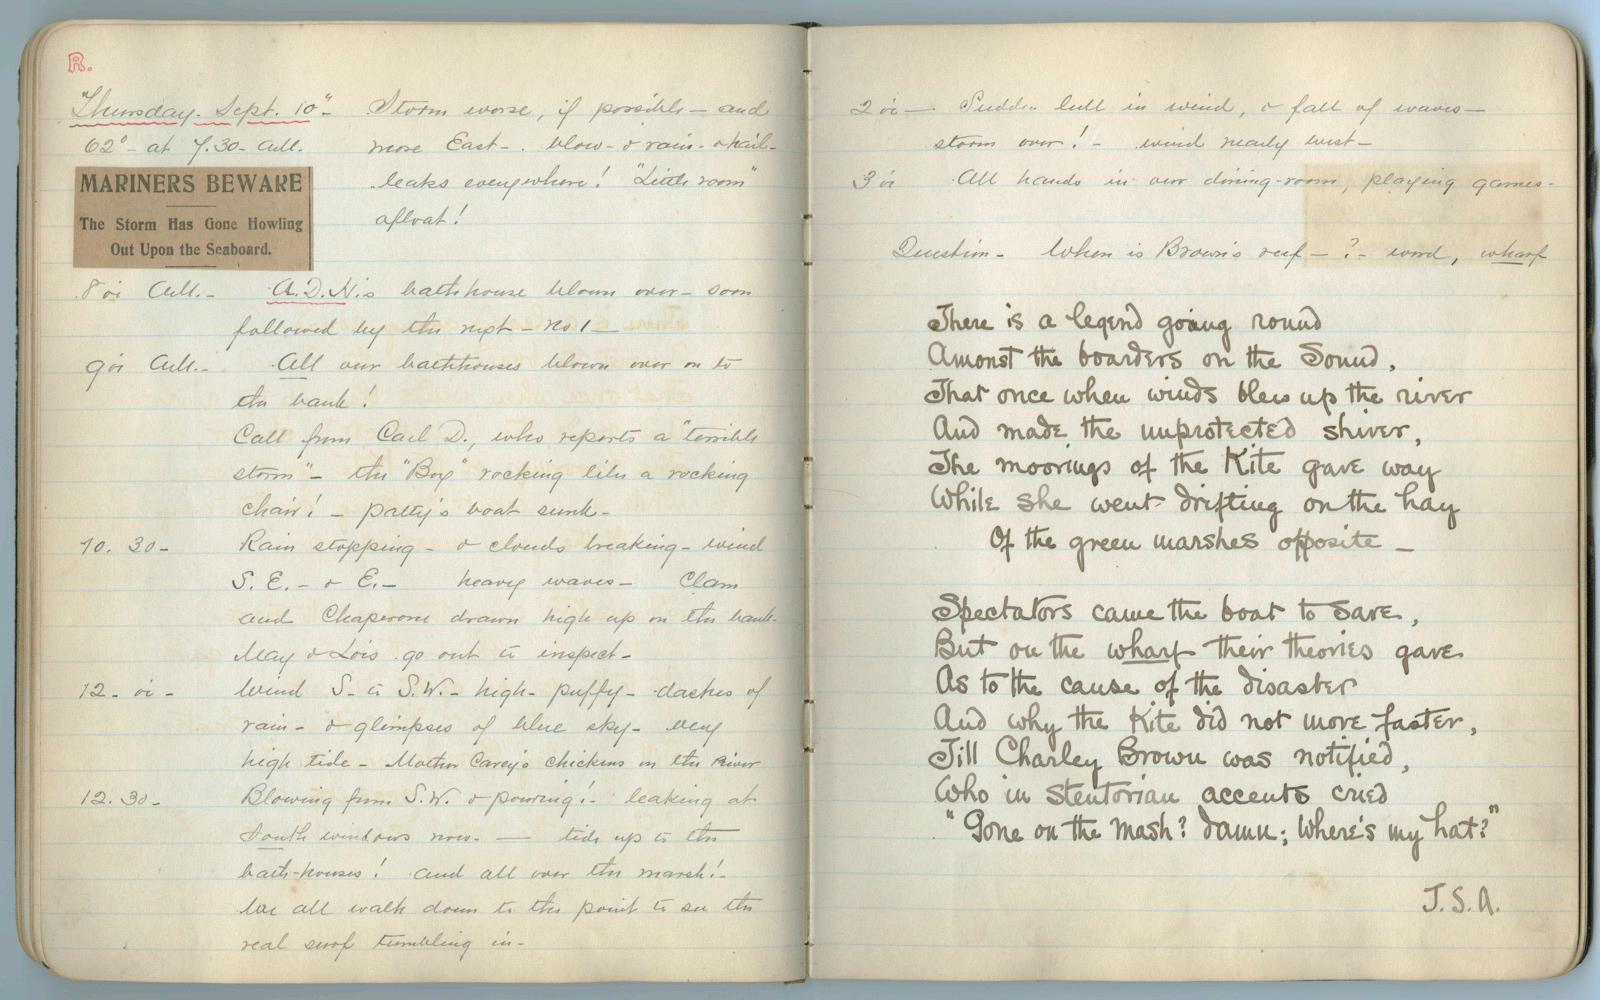 R.
"Thursday. Sept. 10"- Storm worse, if possible - and
62° - at 7.30 - A.M. more East - . blow - & rain - & hail -
MARINERS BEWARE
The Storm Has Gone Howling
Out Upon the Seaboard.
leaks everywhere! "Little room"
afloat!
8 A.M. - A.D.N.s bathhouse blown over - soon
followed by the next - no 1 -
9 A.M. - All our bathhouses blown over on to
the bank!
Call from Carl D., who reports a "terrible
storm" - the "Box" rocking like a rocking
chair! - Patty's boat sunk -
10. 30 - Rain stopping - & clouds breaking - wind
S. E. - & E. - heavy waves - Clam
and Chaperone drawn high up on the bank -
May & Lois go out to inspect -
12 - Wind S - to S.W. - high - puffy - dashes of
rain - & glimpses of blue sky - very
high tide - Mother Carey's chickens on the River
12. 30 - Blowing from S.W. & pouring! - leaking at
South windows now. - tide up to the
bath-houses! and all over the marsh! -
We all walk down to the point to see the
real surf tumbling in -
2 - Sudden lull in wind, & fall of waves -
storm over! - wind nearly west -
3 All hands in our dining-room, playing games -
Question - When is Brown's reef - ? - word, wharf
There is a legend going round
Amonst the boarders on the Sound,
That once when winds blew up the river
And made the unprotected shiver,
The moorings of the Kite gave way
While she went drifting on the hay
Of the green marshes opposite -
Spectators came the boat to save,
But on the wharf their theories gave
As to the cause of the disaster
And why the Kite did not move faster,
Till Charley Brown was notified,
Who in stentorian accents cried
"Gone on the mash? damn; Where's my hat?"
J.S.A.